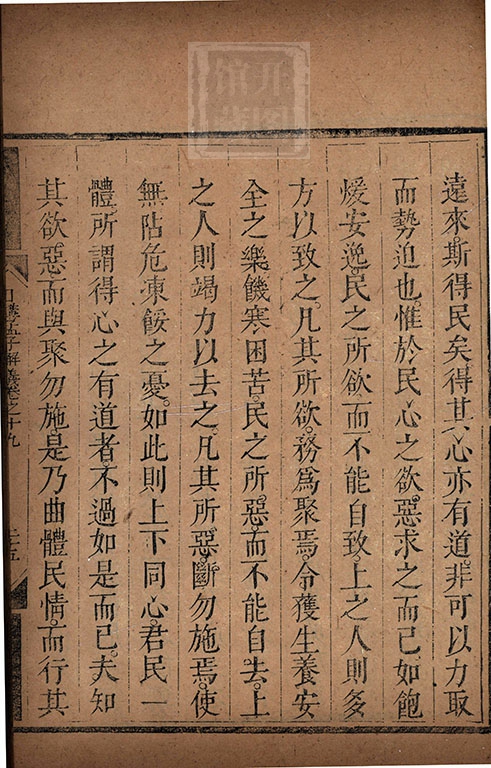 遠來。斯得民矣。得其心亦有道。非可以力取
而勢迫也。惟於民心之欲惡求之而已。如飽
煖安逸。民之所欲而不能自致。上之人則多
方以致之。凡其所欲。務爲聚焉。令獲生養安
全之樂。饑寒困苦。民之所惡。而不能自去。上
之人則竭力以去之。凡其所惡。斷勿施焉。使
無阽危凍餒之憂。如此則上下同心。君民一
體。所謂得心之有道者不過如是而已。夫知
其欲惡而與聚勿施。是乃曲體民情。而行其
日講孟子解義卷之十九
二十五